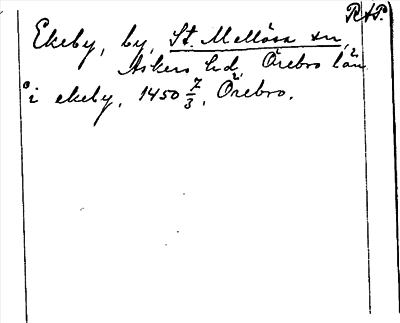 RAP.
Ekeby, by, St. Mellösa sn,
Askers hd, Örebro län
i ekeby, 1450 7/3, Örebro.